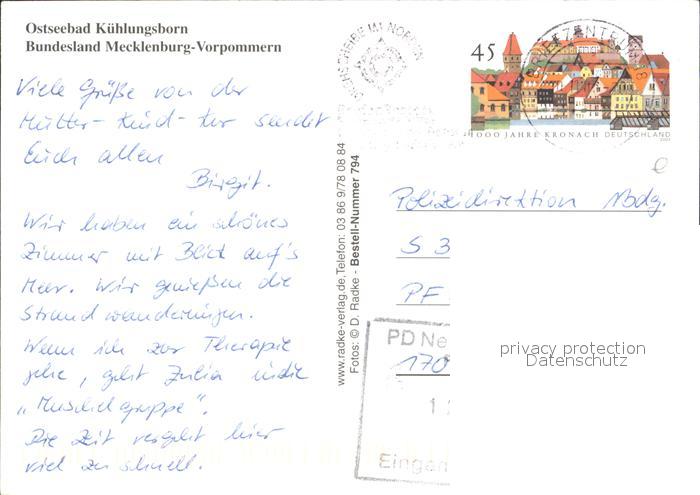 Ostseebad Kühlungsborn
Bundesland Mecklenburg-Vorpommern
Viele Grüße von der
Mutter-Kind-Kur sendet
Euch allen
Birgit.
Wir haben ein schönes
Zimmer mit Blick auf's
Meer. Wir genießen die
Strandwanderungen.
Wenn ich zur Therapie
gehe, geht Julia in die
„Muschelgruppe".
Die Zeit vergeht hier
viel zu schnell.
www.radke-verlag.de, Telefon: 03 86 9/78 08 84
Fotos: © D. Radke - Bestell-Nummer 794
45
1000 JAHRE KRONACH DEUTSCHLAND
Polizeidirektion Nbdg.
S 3
PF
170
PD Ne
1
Eingan
privacy protection
Datenschutz